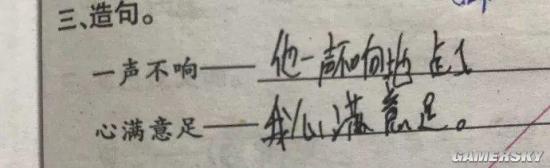 三、造句。
一声不响——他一声不响地 点了
心满意足——我心满意足。
GAMERSKY